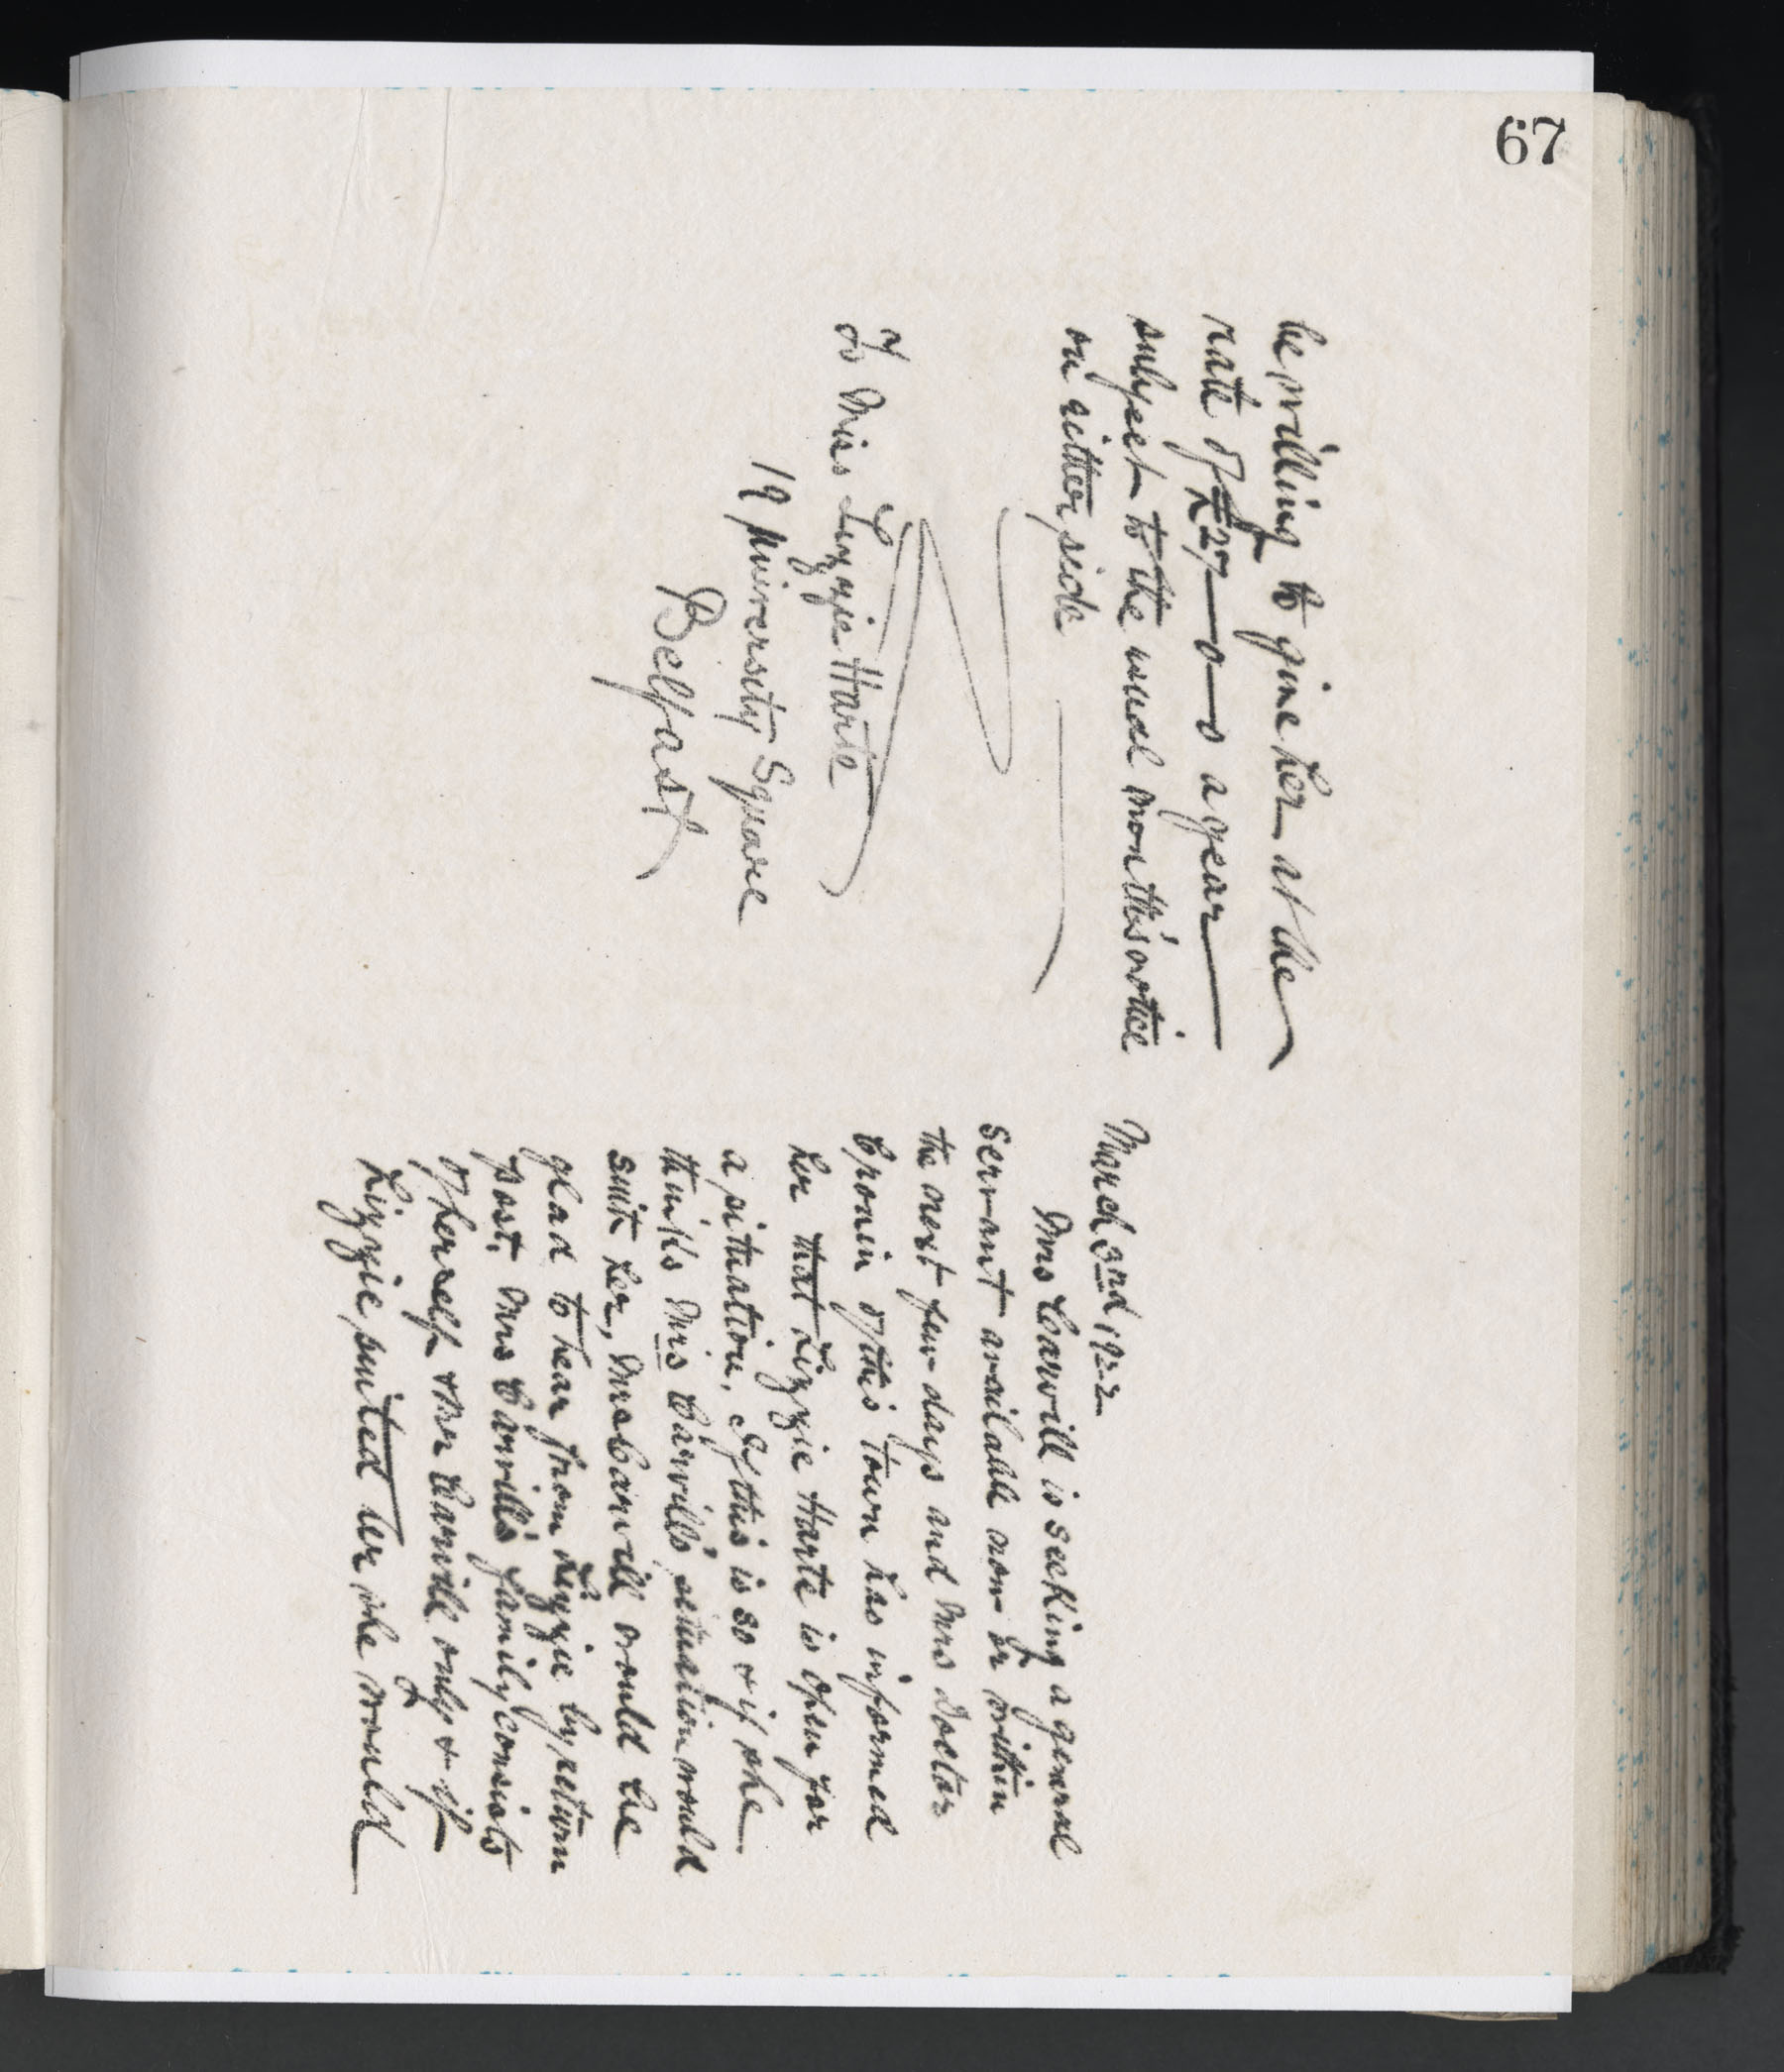 67
March 3rd 1922
Mrs Carvill is seeking a general
servant available now or within
the next few days and Mrs Doctor
Cronin of this town has informed
her that Lizzie Harte is open for
a situation. If this is so & if she
thinks Mrs Carvill's situation would
suit her, Mrs Carvill would be
glad to hear from Lizzie by return
post, Mrs Carvill's family consists
of herself & Mr Carvill only & if
Lizzie suited her she would
be willing to give her at the
rate of £27-0-0 a year
subject to the usual month's notice
on either side
To Miss Lizzie Harte
19 University Square
Belfast